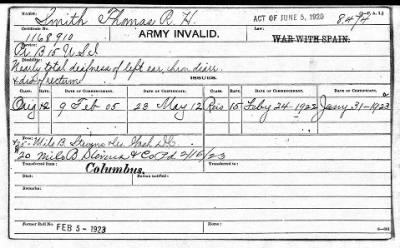 Smith Thomas R. H.
Certificate No.
ARMY INVALID.
ACT OF JUNE 5, 1920
8474
1168910
WAR WITH SPAIN.
Co B 15 U.S.I.
Nearly total deafness of left ear,
& dis of rectum
ISSUES.
CLASS. RATE. DATE OF COMMENCEMENT. DATE OF CERTIFICATE. CLASS. RATE. DATE OF COMMENCEMENT. DATE OF CERTIFICATE.
Orig 12 9 Feb 05 28 May 12 15 Feby 24-1922 Jany 31-1923
Milo B. Stevens & Co. Wash D.C.
20 Milo B Stevens & Co Pd 2/16/23
Transferred from
Columbus,
Died
Former Roll No.
FEB 5-1923